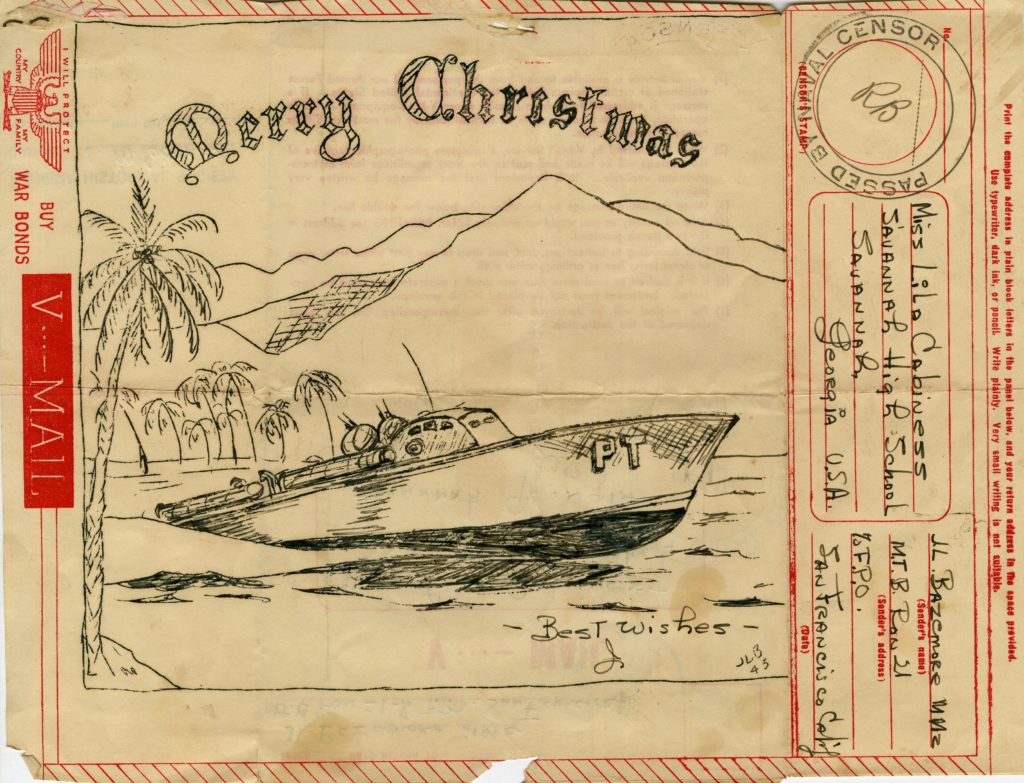 Merry Christmas
PT
- Best Wishes -
J
JLB
43
I WILL PROTECT
MY COUNTRY
MY FAMILY
BUY
WAR BONDS
V···—MAIL
Print the complete address in plain block letters in the panel below, and your return address in the space provided.
Use typewriter, dark ink, or pencil. Write plainly. Very small writing is not suitable.
No.
PASSED BY NAVAL CENSOR
RB
(CENSOR'S STAMP)
Miss Lila Cabiness
Savannah High School
Savannah,
Georgia U.S.A.
JL Bazemore MM2
(Sender's name)
MTB Ron 21
(Sender's address)
% F.P.O.
San Francisco Calif
(Date)